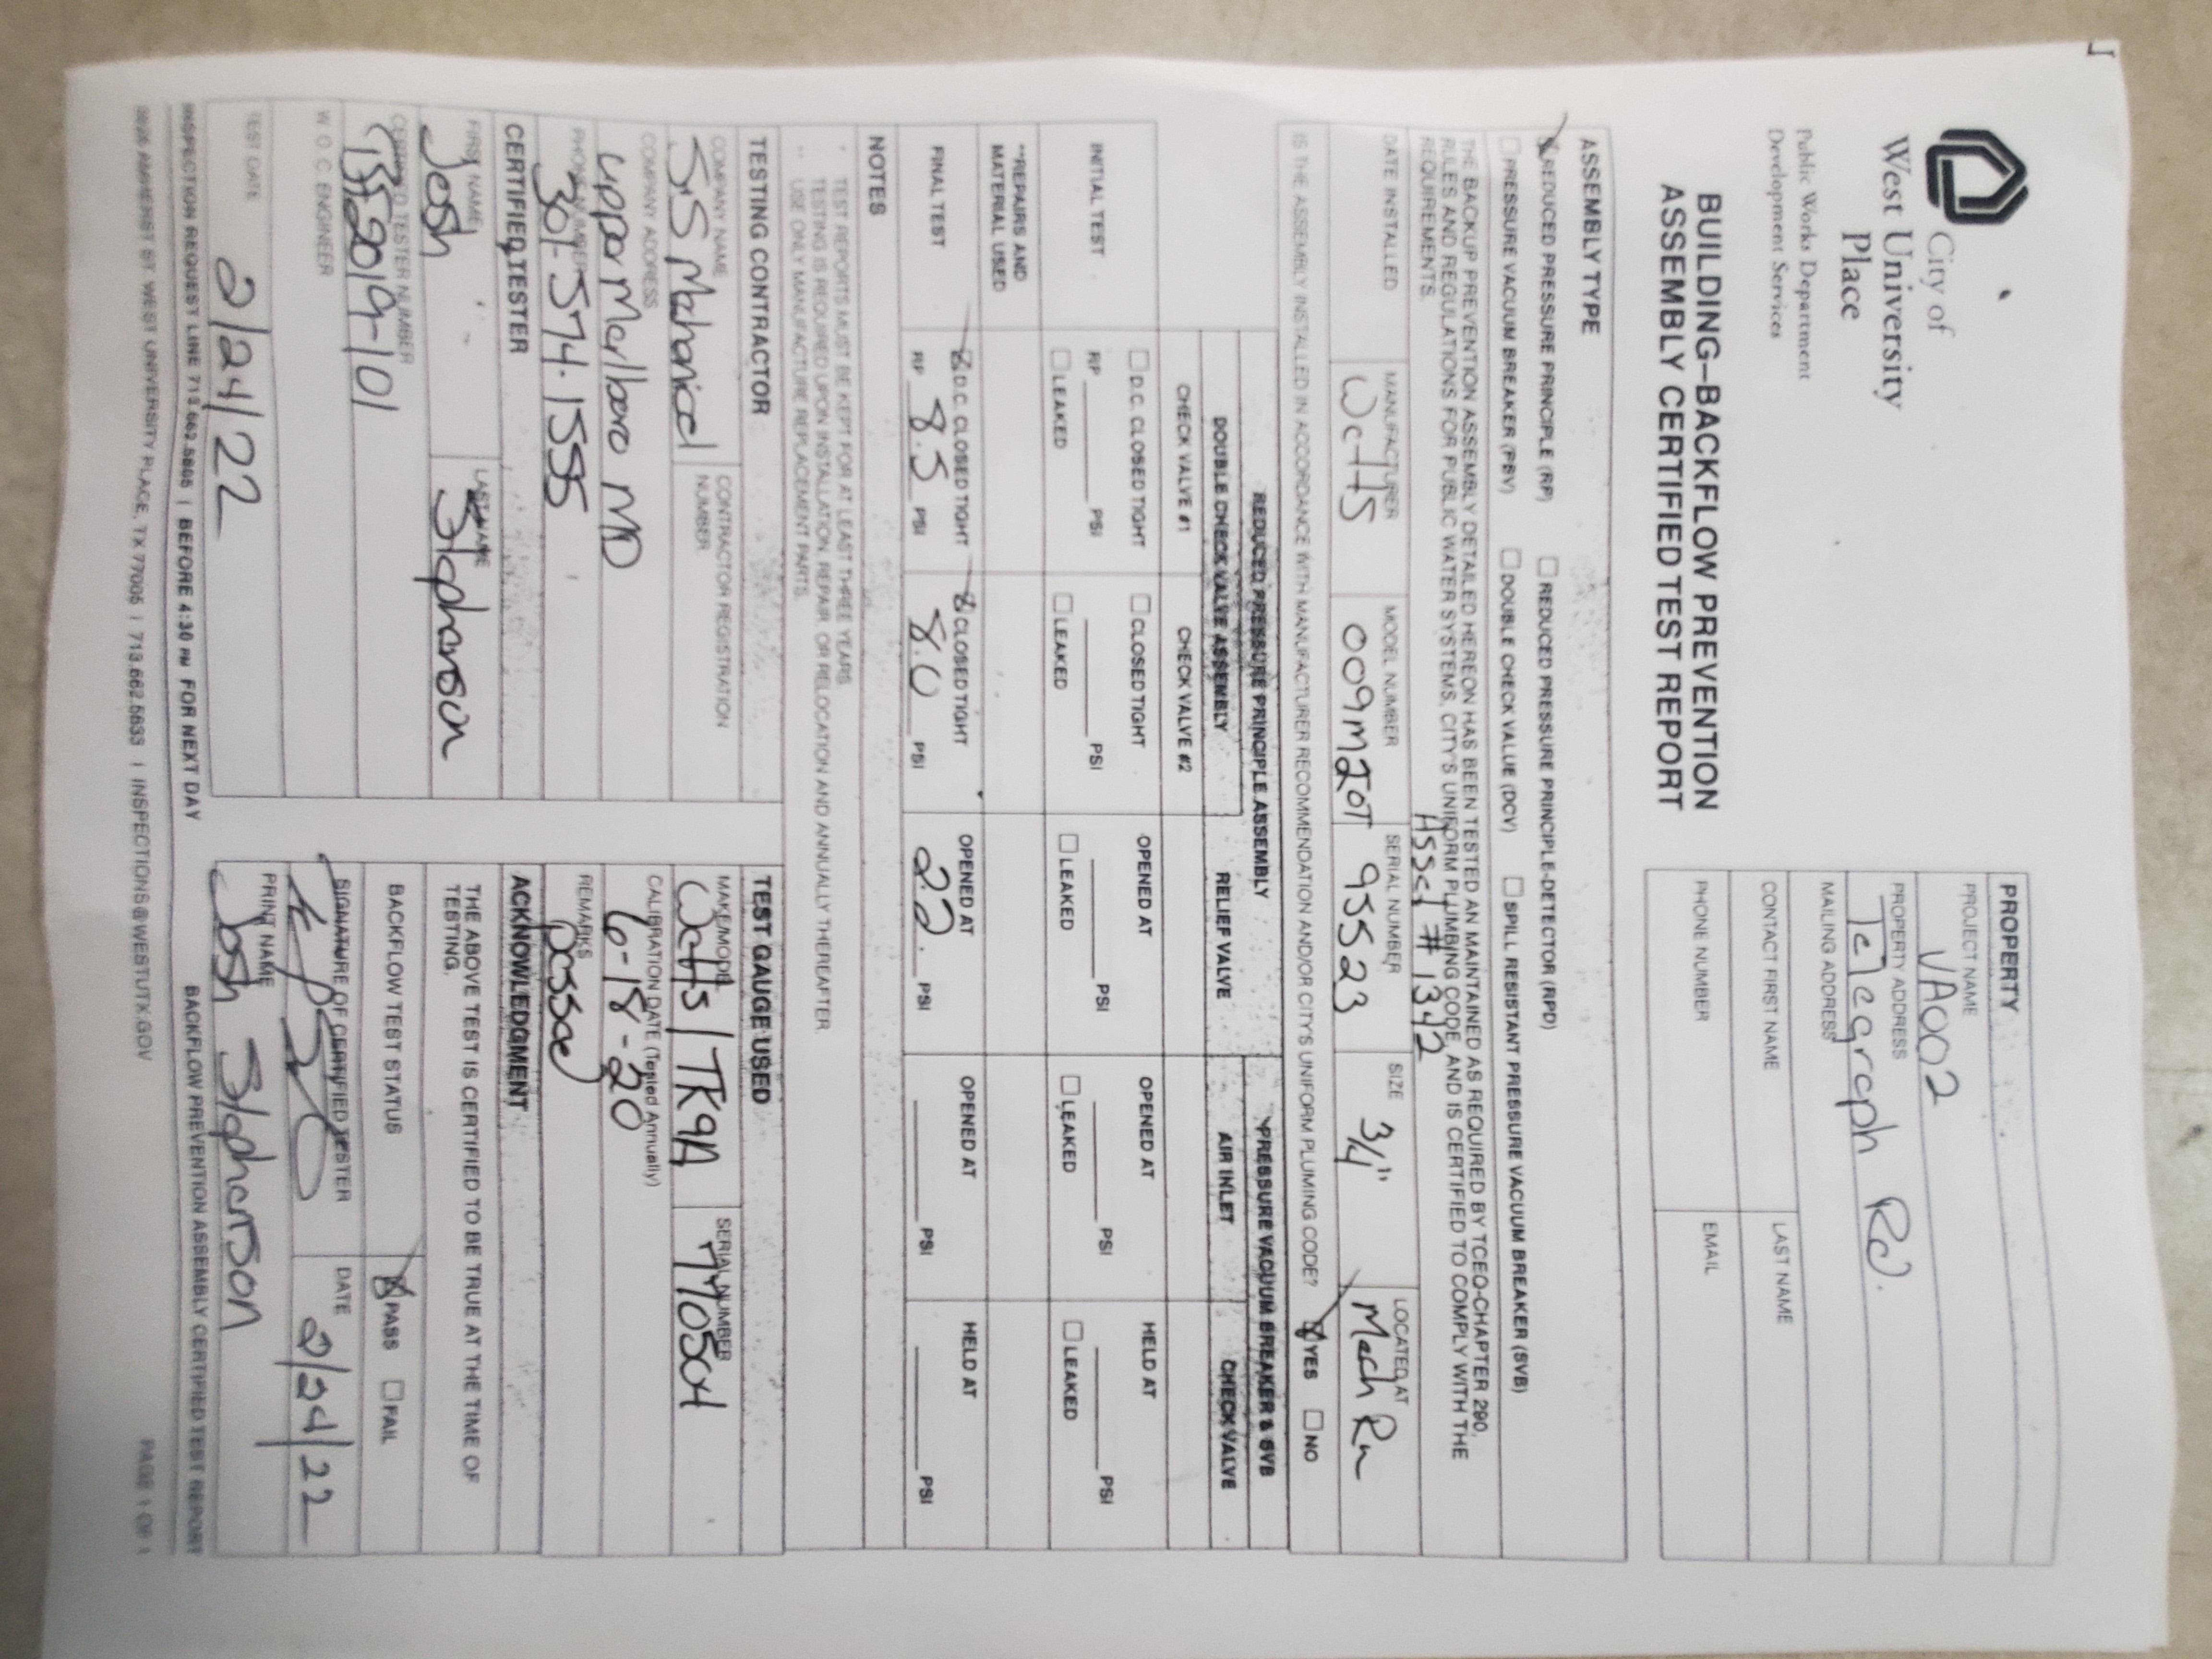 City of
West University
Place
Public Works Department
Development Services
BUILDING–BACKFLOW PREVENTION
ASSEMBLY CERTIFIED TEST REPORT
PROPERTY
PROJECT NAME
VA002
PROPERTY ADDRESS
Telegraph Rd.
MAILING ADDRESS
CONTACT FIRST NAME
LAST NAME
PHONE NUMBER
EMAIL
ASSEMBLY TYPE
REDUCED PRESSURE PRINCIPLE (RP)
REDUCED PRESSURE PRINCIPLE-DETECTOR (RPD)
PRESSURE VACUUM BREAKER (PBV)
DOUBLE CHECK VALUE (DCV)
SPILL RESISTANT PRESSURE VACUUM BREAKER (SVB)
THE BACKUP PREVENTION ASSEMBLY DETAILED HEREON HAS BEEN TESTED AN MAINTAINED AS REQUIRED BY TCEQ-CHAPTER 290,
RULES AND REGULATIONS FOR PUBLIC WATER SYSTEMS, CITY'S UNIFORM PLUMBING CODE, AND IS CERTIFIED TO COMPLY WITH THE
REQUIREMENTS.
Asset # 1342
DATE INSTALLED
MANUFACTURER
Watts
MODEL NUMBER
009M2QT
SERIAL NUMBER
95523
SIZE
3/4"
LOCATED AT
Mech Rm
IS THE ASSEMBLY INSTALLED IN ACCORDANCE WITH MANUFACTURER RECOMMENDATION AND/OR CITY'S UNIFORM PLUMING CODE?
YES
NO
REDUCED PRESSURE PRINCIPLE ASSEMBLY
PRESSURE VACUUM BREAKER & SVB
DOUBLE CHECK VALVE ASSEMBLY
RELIEF VALVE
AIR INLET
CHECK VALVE
CHECK VALVE #1
CHECK VALVE #2
INITIAL TEST
D.C. CLOSED TIGHT
RP PSI
LEAKED
CLOSED TIGHT
PSI
LEAKED
OPENED AT
PSI
LEAKED
OPENED AT
PSI
LEAKED
HELD AT
PSI
LEAKED
**REPAIRS AND
MATERIAL USED
FINAL TEST
D.C. CLOSED TIGHT
RP 8.5 PSI
CLOSED TIGHT
8.0 PSI
OPENED AT
2.2 PSI
OPENED AT
PSI
HELD AT
PSI
NOTES
* TEST REPORTS MUST BE KEPT FOR AT LEAST THREE YEARS
TESTING IS REQUIRED UPON INSTALLATION, REPAIR OR RELOCATION AND ANNUALLY THEREAFTER
** USE ONLY MANUFACTURE REPLACEMENT PARTS.
TESTING CONTRACTOR
COMPANY NAME
SJS Mechanical
CONTRACTOR REGISTRATION
NUMBER
COMPANY ADDRESS
upper Marlboro MD
PHONE NUMBER
301-574-1555
CERTIFIED TESTER
FIRST NAME
Josh
LAST NAME
Stephenson
CERTIFIED TESTER NUMBER
2019-101
W.O.C. ENGINEER
TEST DATE
2/24/22
TEST GAUGE USED
MAKE/MODEL
Watts / TK9A
SERIAL NUMBER
CALIBRATION DATE (Tested Annually)
6-18-20
REMARKS
passed
ACKNOWLEDGMENT
THE ABOVE TEST IS CERTIFIED TO BE TRUE AT THE TIME OF
TESTING.
BACKFLOW TEST STATUS
PASS
FAIL
SIGNATURE OF CERTIFIED TESTER
DATE
2/24/22
PRINT NAME
Josh Stephenson
INSPECTION REQUEST LINE 713.662.5805 | BEFORE 4:30 PM FOR NEXT DAY
BACKFLOW PREVENTION ASSEMBLY CERTIFIED TEST REPORT
AMHERST ST. WEST UNIVERSITY PLACE, TX 77005 | 713.662.5833 | INSPECTIONS@WESTUTX.GOV
PAGE 1 OF 1